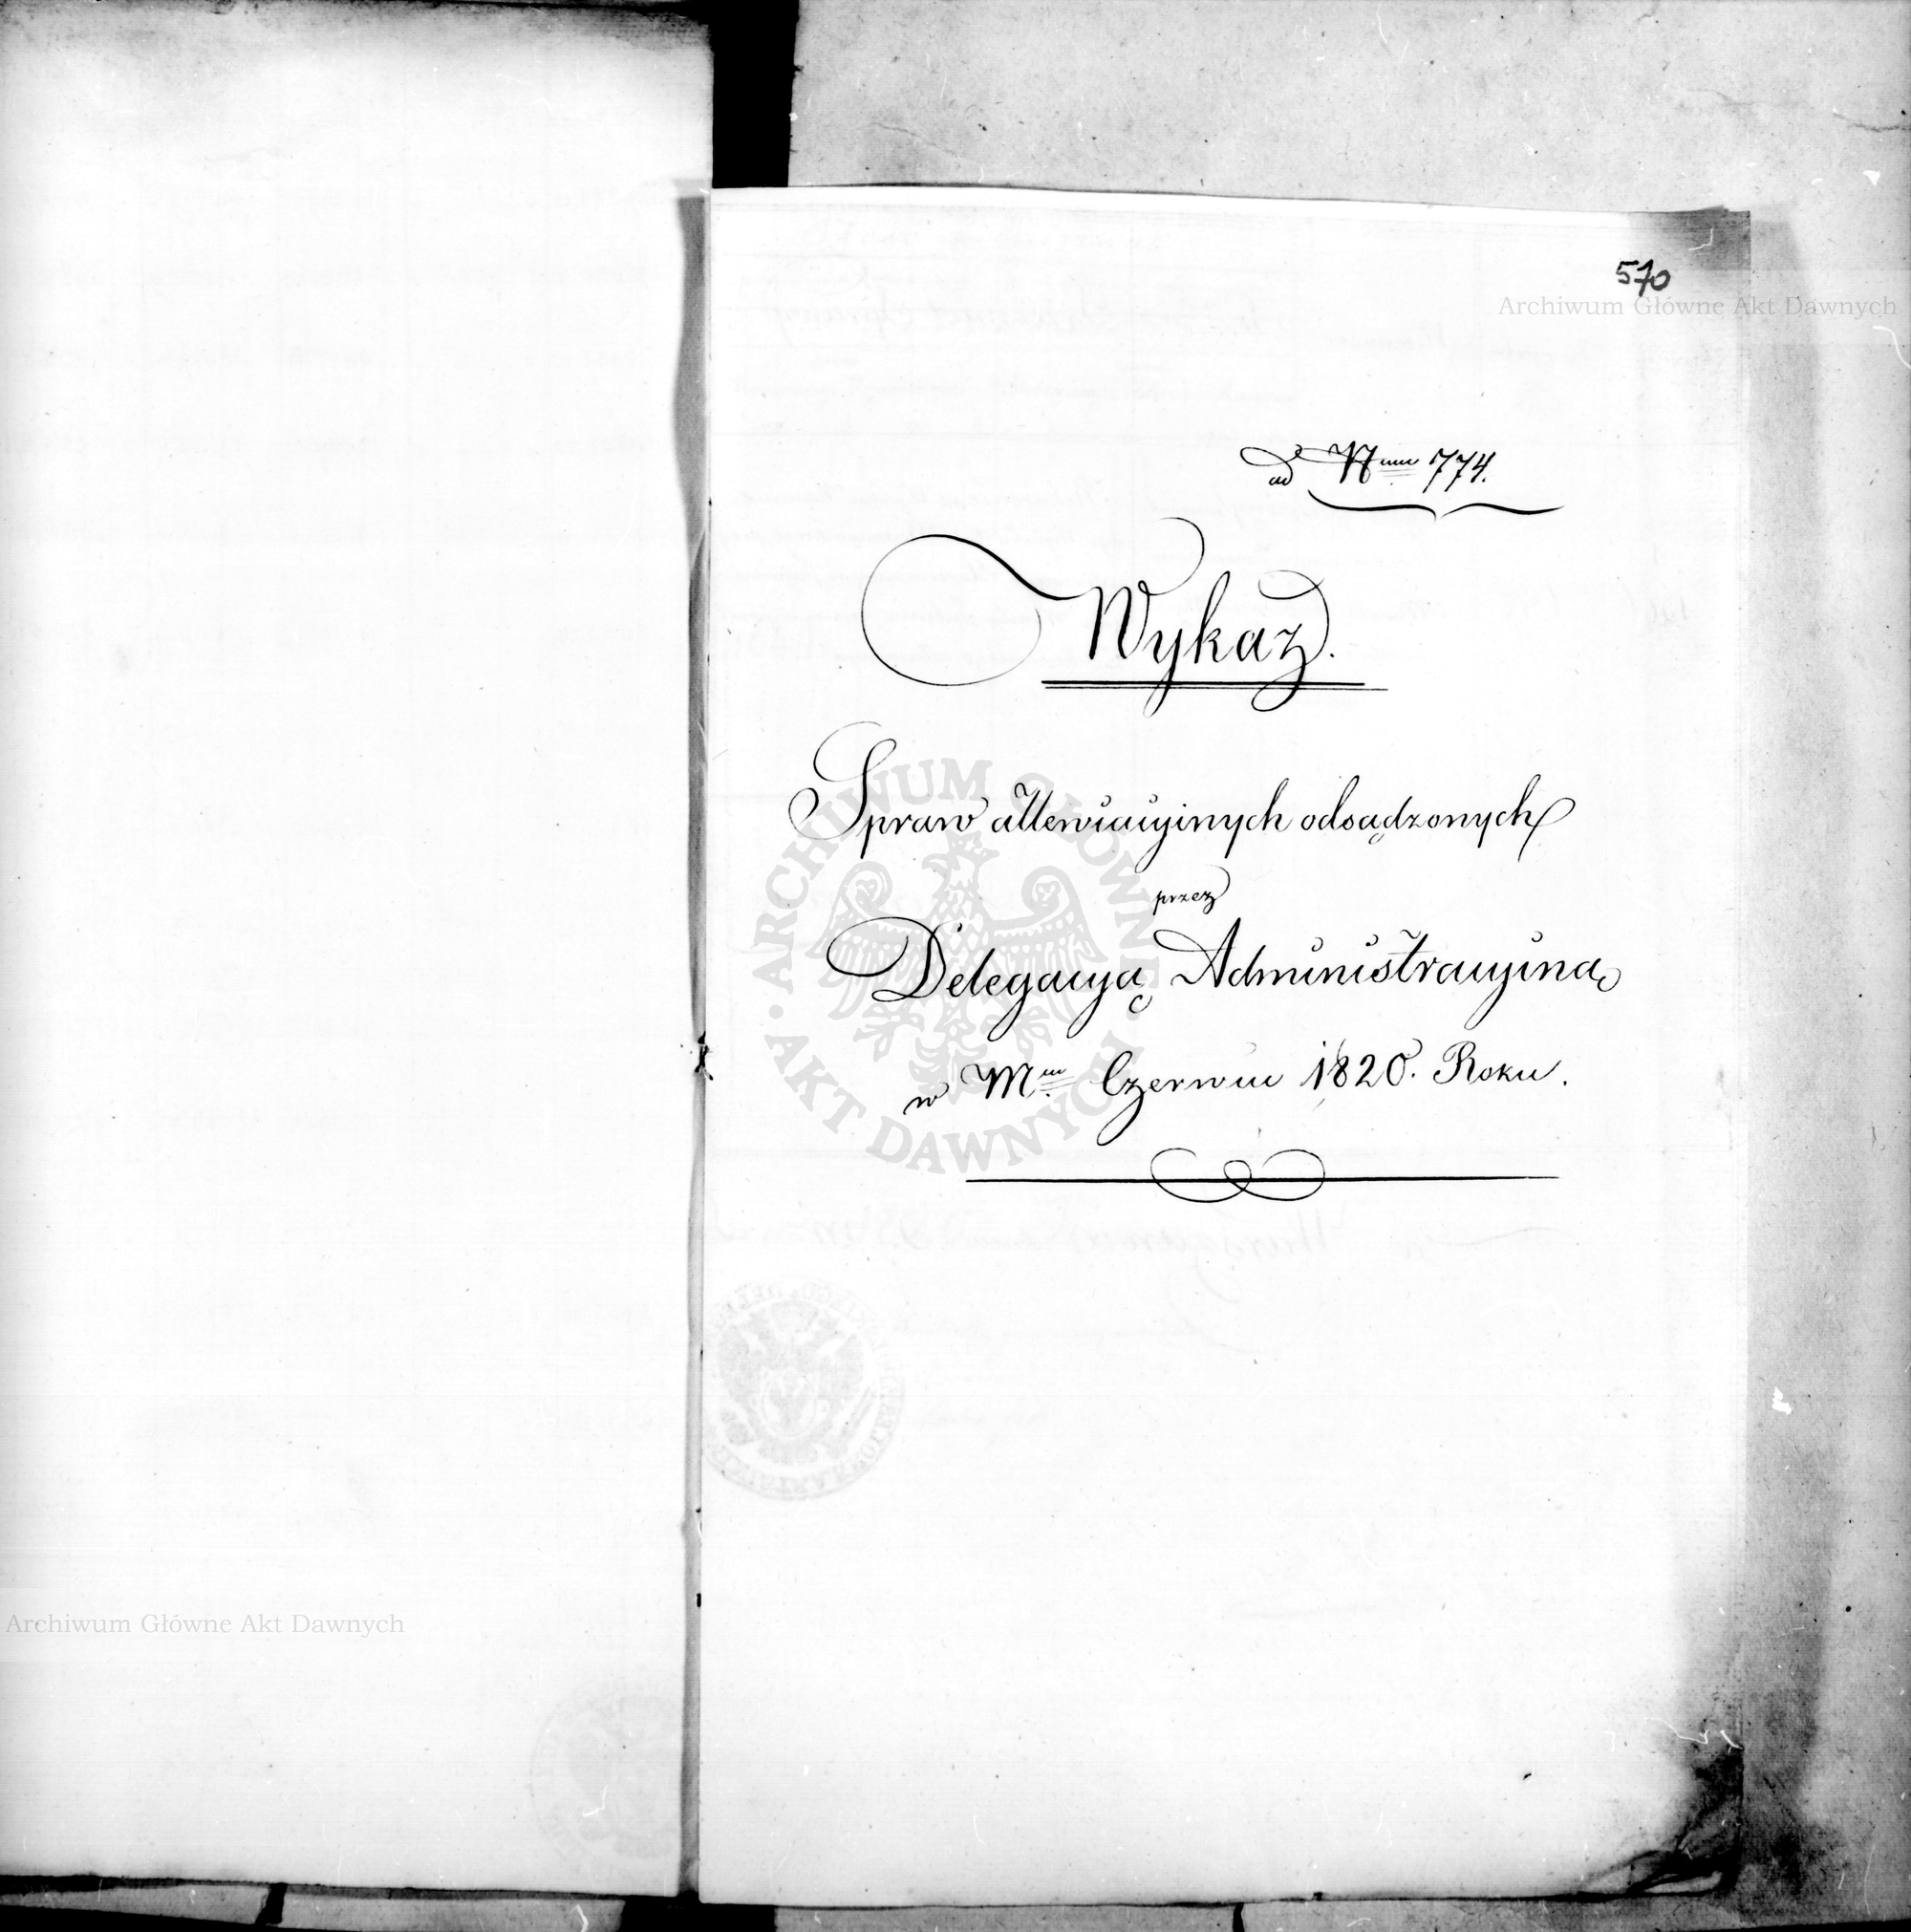 570
Archiwum Główne Akt Dawnych
ad Nrum 774.
Wykaz.
Spraw allewiacyinych odsądzonych
przez
Delegacyą Administracyiną
w Mcu Czerwcu 1820. Roku.
ARCHIWUM GŁÓWNE
AKT DAWNYCH
Archiwum Główne Akt Dawnych